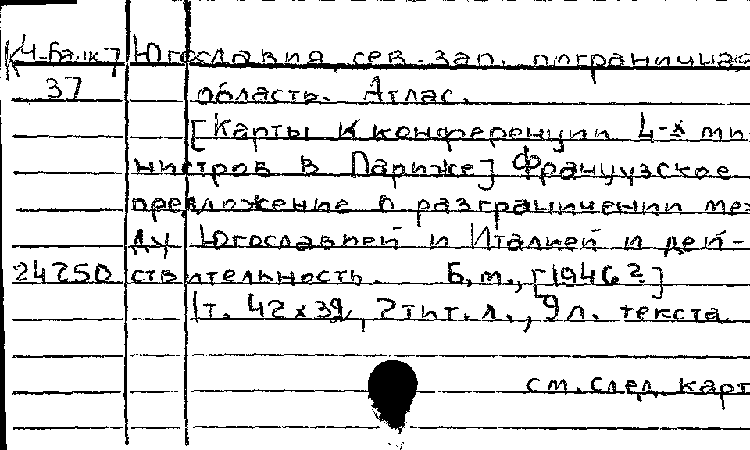 К4-Балк7 Югославия, сев.-зап. пограничная
37 область. Атлас.
[Карты к конференции 4-х ми-
нистров в Париже] Французское
предложение о разграничении меж-
ду Югославией и Италией и дей-
24250 ствительность. Б.м., [1946?]
1т. 42х39, 2 тит. л., 9 л. текста.
см. след. карт